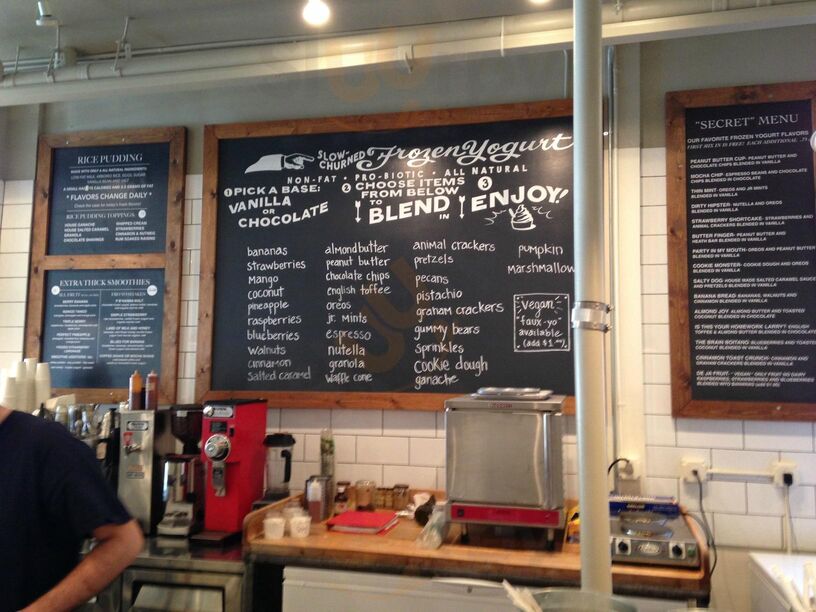 RICE PUDDING
MADE WITH ONLY 6 NATURAL INGREDIENTS
LOW-FAT MILK, ARBORIO RICE, EGGS, SUGAR,
VANILLA BEAN AND SALT
* FLAVORS CHANGE DAILY *
RICE PUDDING TOPPINGS
HOUSE GANACHE
HOUSE SALTED CARAMEL
GRANOLA
CHOCOLATE SHAVINGS
WHIPPED CREAM
STRAWBERRIES
CINNAMON & NUTMEG
RUM SOAKED RAISINS
EXTRA THICK SMOOTHIES
BERRY BANANA
MANGO TANGO
TRIPLE BERRY
PERFECT PINEAPPLE
FROZEN STRAWBERRY
LEMONADE
SIMPLE STRAWBERRY
LAND OF MILK AND HONEY
SLOW-
CHURNED
Frozen Yogurt
NON-FAT • PRO-BIOTIC • ALL NATURAL
1 PICK A BASE:
VANILLA
OR
CHOCOLATE
2 CHOOSE ITEMS
FROM BELOW
TO
BLEND IN
3
ENJOY!
bananas
strawberries
mango
coconut
pineapple
raspberries
blueberries
walnuts
cinnamon
salted caramel
almond butter
peanut butter
chocolate chips
english toffee
oreos
jr. mints
espresso
nutella
granola
waffle cone
animal crackers
pretzels
pecans
pistachio
graham crackers
gummy bears
sprinkles
cookie dough
ganache
pumpkin
marshmallow
vegan
"faux-yo"
available
(add $1.00)
"SECRET" MENU
OUR FAVORITE FROZEN YOGURT FLAVORS
FIRST MIX IN IS FREE! EACH ADDITIONAL .75
PEANUT BUTTER CUP- PEANUT BUTTER AND
CHIPS BLENDED IN CHOCOLATE
MOCHA CHIP- ESPRESSO BEANS AND CHOCOLATE
CHIPS BLENDED IN CHOCOLATE
THIN MINT- OREOS AND JR MINTS
BLENDED IN VANILLA
DIRTY HIPSTER- NUTELLA AND OREOS
BLENDED IN VANILLA
STRAWBERRY SHORTCAKE- STRAWBERRIES AND
ANIMAL CRACKERS BLENDED IN VANILLA
BUTTER FINGER- PEANUT BUTTER AND
HEATH BAR BLENDED IN VANILLA
PARTY IN MY MOUTH- OREOS AND PEANUT BUTTER
BLENDED IN VANILLA
COOKIE MONSTER- COOKIE DOUGH AND OREOS
BLENDED IN VANILLA
SALTY DOG- HOUSE MADE SALTED CARAMEL SAUCE
AND PRETZELS BLENDED IN VANILLA
BANANA BREAD- BANANAS, WALNUTS AND
CINNAMON BLENDED IN VANILLA
ALMOND JOY- ALMOND BUTTER AND TOASTED
COCONUT BLENDED IN CHOCOLATE
IS THIS YOUR HOMEWORK LARRY?- ENGLISH
TOFFEE & ALMOND BUTTER BLENDED IN CHOCOLATE
THE BRAIN BOITANO- BLUEBERRIES AND TOASTED
COCONUT BLENDED IN VANILLA
CINNAMON TOAST CRUNCH- CINNAMON AND
GRAHAM CRACKERS BLENDED IN VANILLA
DE JA FRUIT- "VEGAN" ONLY FRUIT NO DAIRY
RASPBERRIES, STRAWBERRIES AND BLUEBERRIES
BLENDED INTO BANANAS (add $1.00)